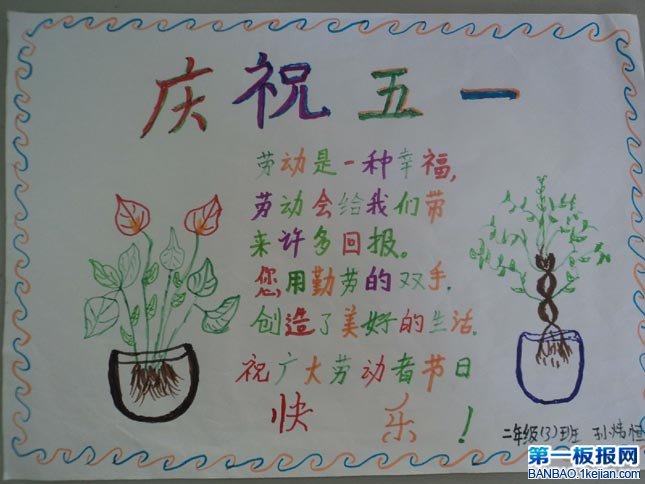 庆祝五一
劳动是一种幸福,
劳动会给我们带
来许多回报。
您用勤劳的双手,
创造了美好的生活.
祝广大劳动者节日
快乐!
二年级(3)班 孙炜恒
第一板报网
BANBAO.1kejian.com